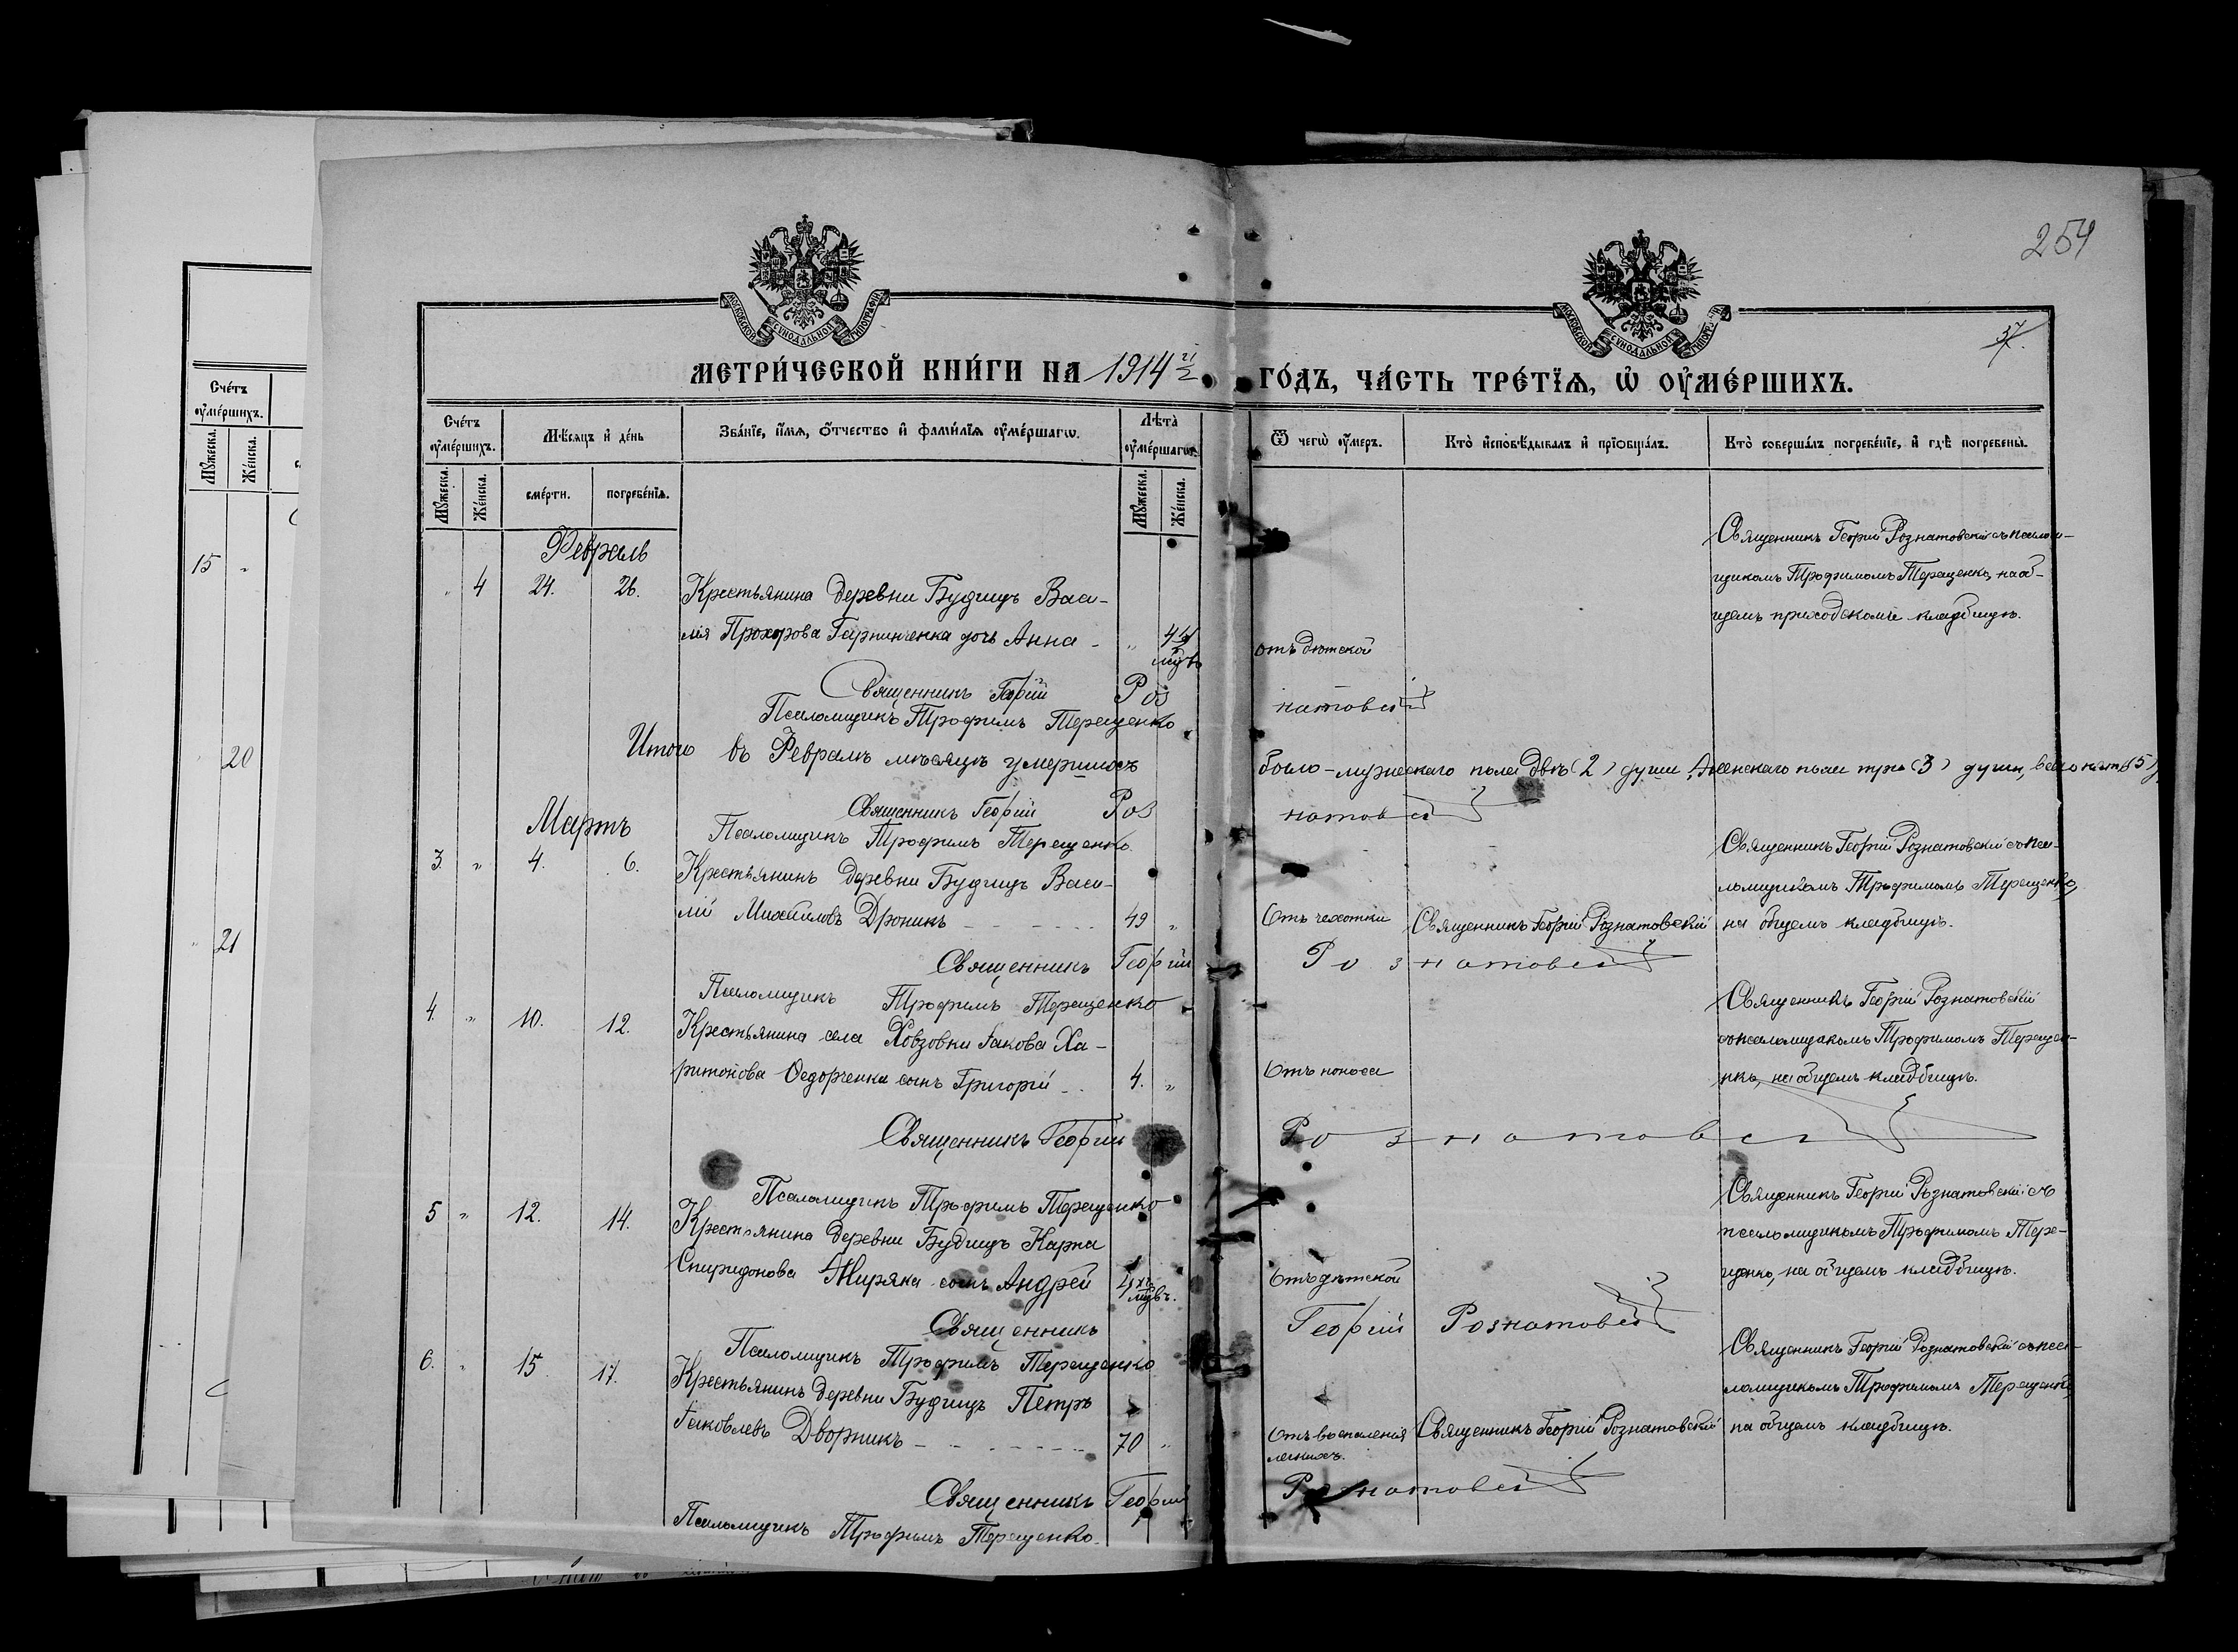 254
37
МОСКОВСКОЙ СѴНОДАЛЬНОЙ ТИПОГРАФІИ
МОСКОВСКОЙ СѴНОДАЛЬНОЙ ТИПОГРАФІИ
МЕТРИ́ЧЕСКОЙ КНИ́ГИ НА 1914й ГО́ДЪ, ЧА́СТЬ ТРЕ́ТІѦ, Ѡ҆ ОУ҆МЕ́РШИХЪ.
Сче́тъ оу҆ме́ршихъ.
Мѣ́сяцъ и҆ де́нь
Зва́нїе, и҆́мѧ, ѻ҆́тчество и҆ фами́лїѧ оу҆ме́ршагѡ.
Лѣ́та оу҆ме́ршагѡ.
Ѿ чегѡ̀ оу҆́меръ.
Кто̀ и҆сповѣ́дывалъ и҆ прїѡбща́лъ.
Кто̀ соверша́лъ погребе́нїе, и҆ гдѣ̀ погребены̀.
Мꙋ́жеска.
Же́нска.
сме́рти.
погребе́нїѧ.
Мꙋ́жеска.
Же́нска.
Февраль
" 4 24. 26. Крестьянина деревни Будищъ Васи-
лія Прохорова дочь Анна - "
мцвъ
отъ дѣтской
Священникъ Георгій Рознатовскій съ псалом-
щикомъ Трофимомъ Терещенко, на об-
щемъ приходскомъ кладбищѣ.
Священникъ Георгій Рознатовскій
Псаломщикъ Трофимъ Терещенко
Итого въ Февралѣ мѣсяцѣ умершихъ было - мужескаго пола двѣ (2) души, женскаго пола три (3) души, всего пять (5)
Священникъ Георгій Рознатовскій
Псаломщикъ Трофимъ Терещенко.
Мартъ
3. " 4. 6. Крестьянинъ деревни Будищъ Васи-
лій Михайловъ Дроникъ - - - 49 "
Отъ чахотки
Священникъ Георгій Рознатовскій
Священникъ Георгій Рознатовскій съ пса-
ломщикомъ Трофимомъ Терещенко,
на общемъ кладбищѣ.
Священникъ Георгій Рознатовскій
Псаломщикъ Трофимъ Терещенко
4. " 10. 12. Крестьянина села Ховзовки Іакова Ха-
ритонова Ѳедорченка сынъ Григорій - 4. "
Отъ поноса
Священникъ Георгій Рознатовскій
съ псаломщикомъ Трофимомъ Терещен-
ко, на общемъ кладбищѣ.
Священникъ Георгій Рознатовскій
Псаломщикъ Трофимъ Терещенко
5 " 12. 14. Крестьянина деревни Будищъ Карпа
Спиридонова Жиряка сынъ Андрей 4хъ
мцвъ.
Отъ дѣтской
Священникъ Георгій Рознатовскій съ
псаломщикомъ Трофимомъ Тере-
щенко, на общемъ кладбищѣ.
Священникъ Георгій Рознатовскій
Псаломщикъ Трофимъ Терещенко
6. " 15. 17. Крестьянинъ деревни Будищъ Петръ
Іаковлевъ Дворникъ - - - 70 "
Отъ воспаленія
легкихъ.
Священникъ Георгій Рознатовскій
Священникъ Георгій Рознатовскій съ пса-
ломщикомъ Трофимомъ Терещенко
на общемъ кладбищѣ.
Священникъ Георгій Рознатовскій
Псаломщикъ Трофимъ Терещенко.
Сче́тъ оу҆ме́ршихъ.
Мꙋ́жеска.
Же́нска.
15 "
" 20
" 21